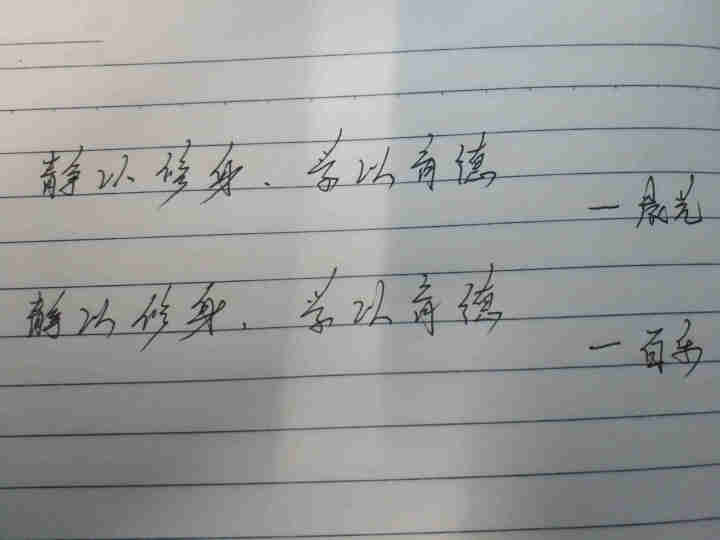 静以修身、学以育德
一晨光
静以修身、学以育德
一百乐